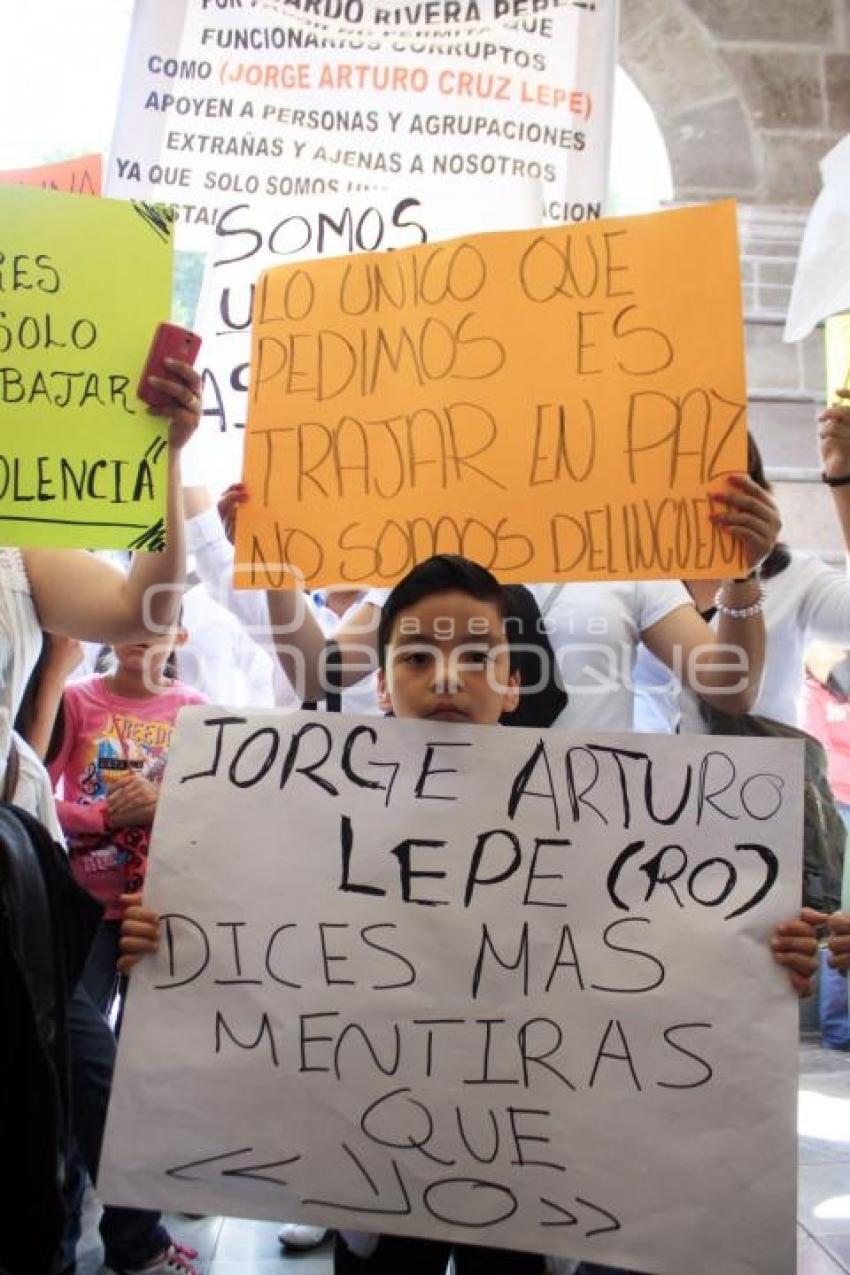 RDO RIVERA
QUE
FUNCIONARIOS CORRUPTOS
COMO (JORGE ARTURO CRUZ LEPE)
APOYEN A PERSONAS Y AGRUPACIONES
EXTRAÑAS Y AJENAS A NOSOTROS
YA QUE SOLO SOMOS
SOMOS
RES
SOLO
BAJAR
OLENCIA
LO UNICO QUE
PEDIMOS ES
TRAJAR EN PAZ
NO SOMOS DELINCUEN
agencia
enfoque
JORGE ARTURO
LEPE (RO)
DICES MAS
MENTIRAS
QUE
<< YO >>